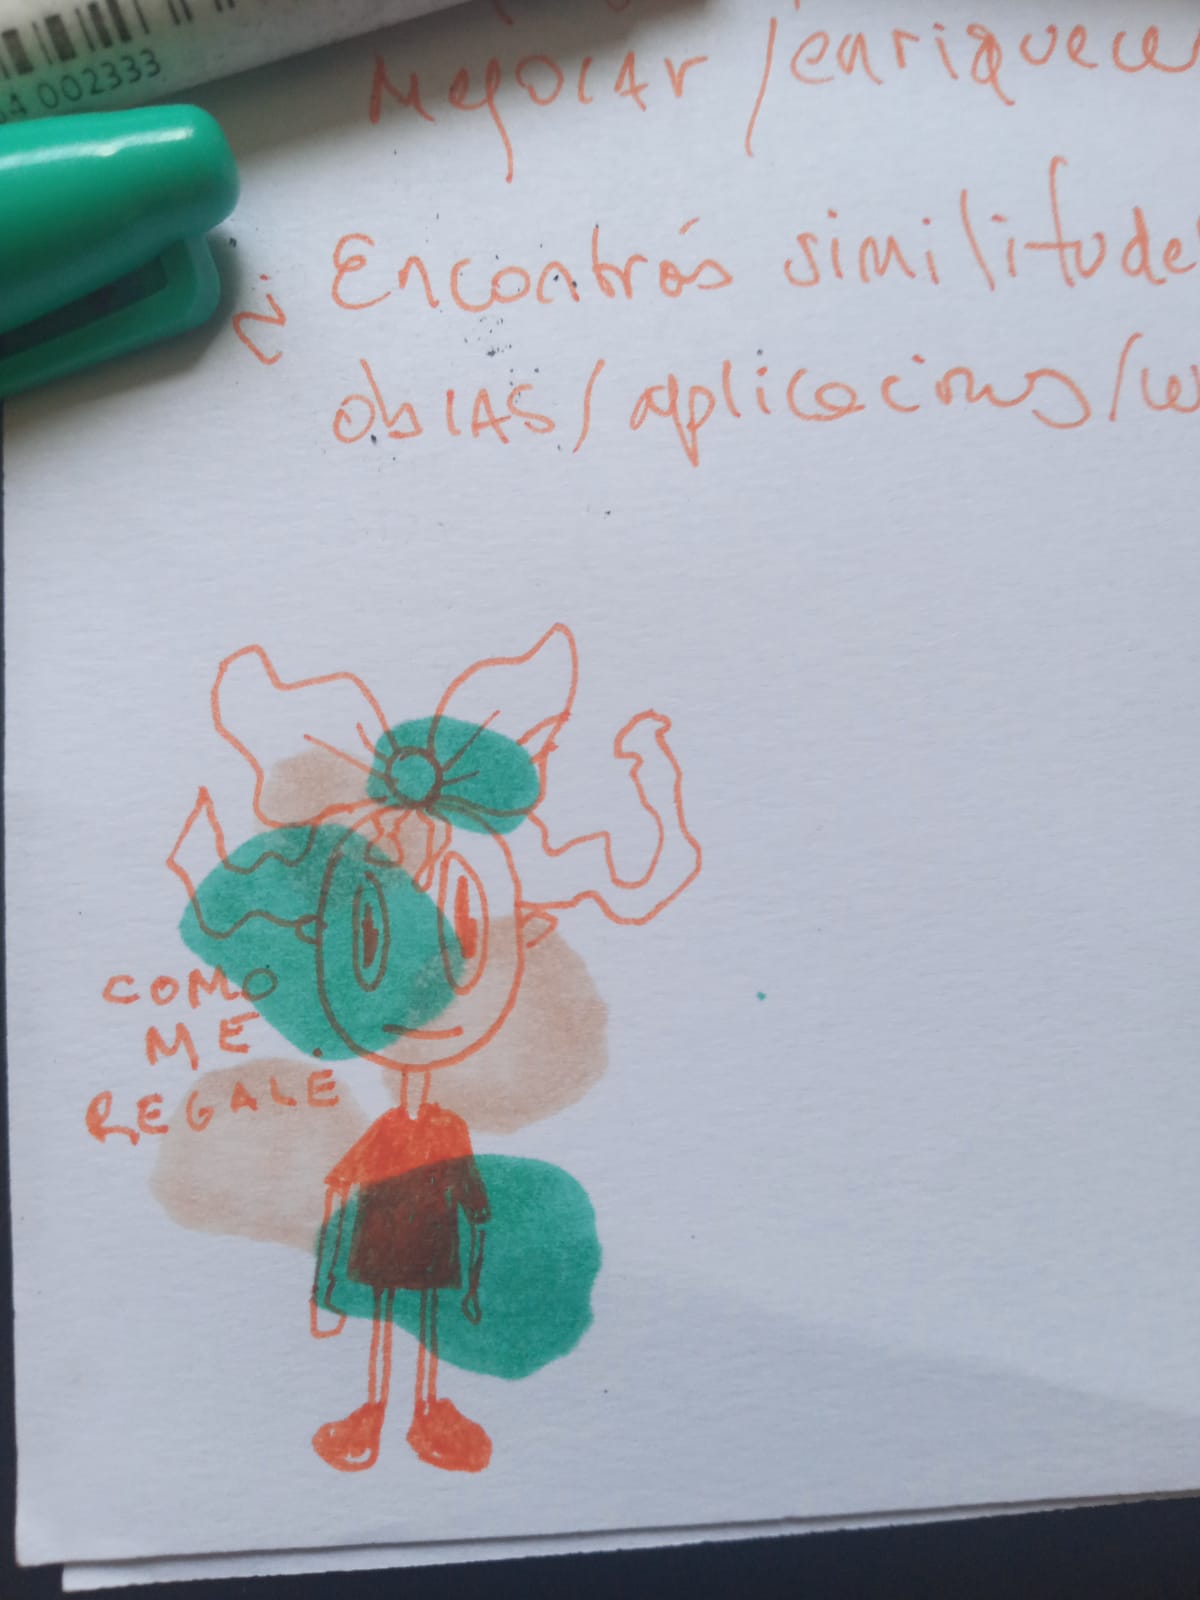 002333
Mejorar / enriquecer
¿ Encontrás similitude
obras / aplicaciones /
COMO
ME
REGALÉ